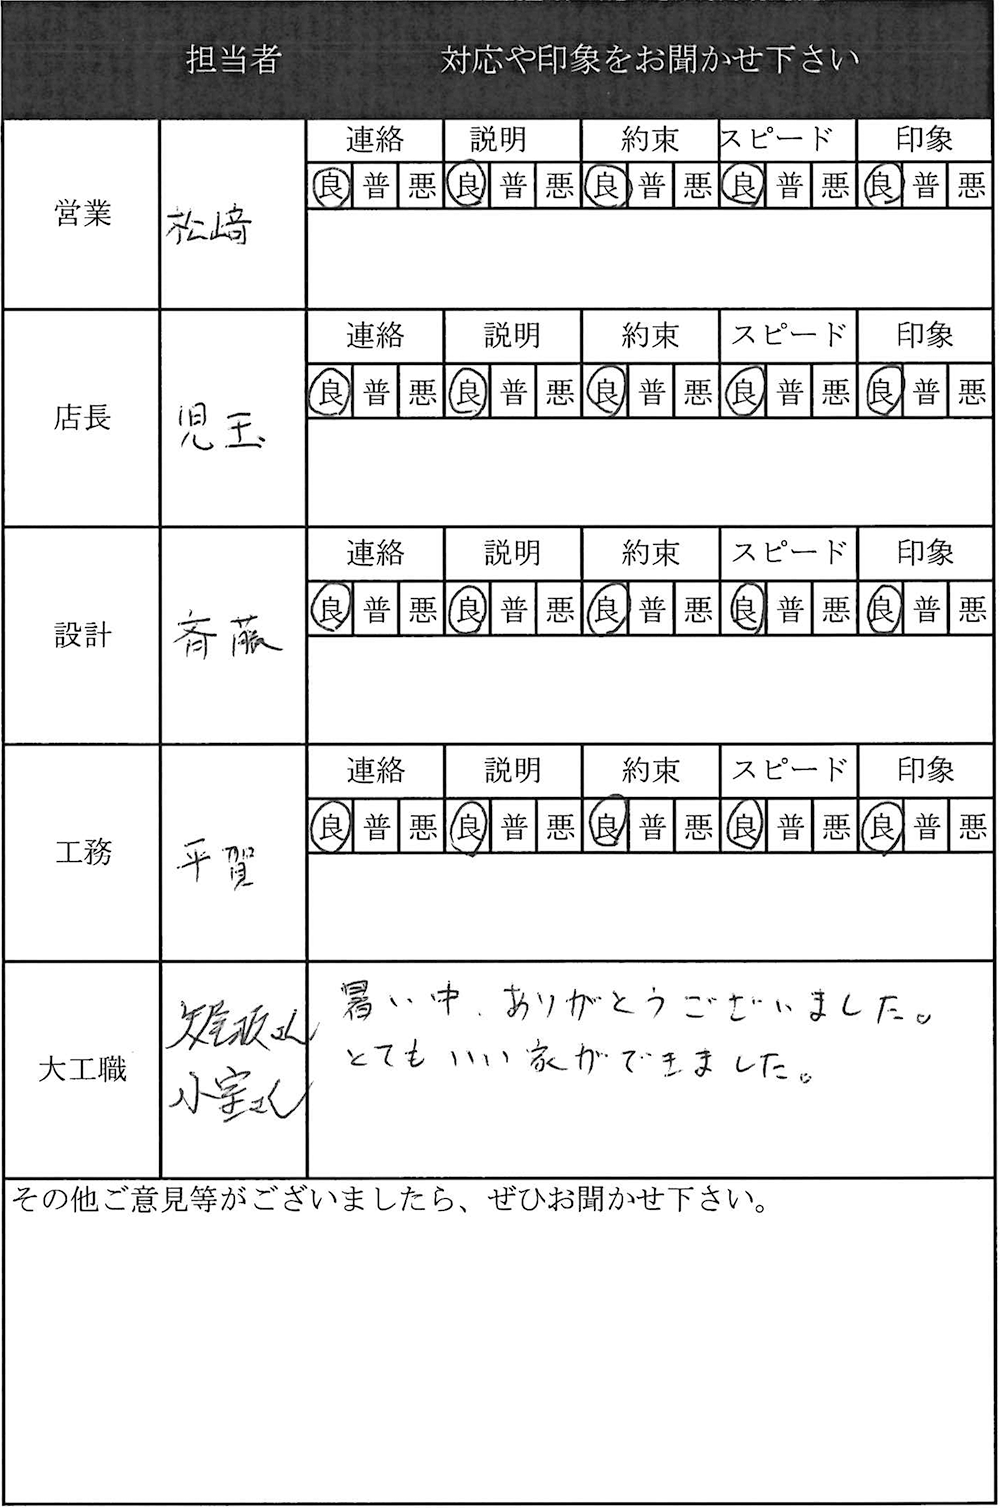 担当者 対応や印象をお聞かせ下さい
営業 松﨑 連絡 説明 約束 スピード 印象
良 普 悪 良 普 悪 良 普 悪 良 普 悪 良 普 悪
店長 児玉 連絡 説明 約束 スピード 印象
良 普 悪 良 普 悪 良 普 悪 良 普 悪 良 普 悪
設計 斉藤 連絡 説明 約束 スピード 印象
良 普 悪 良 普 悪 良 普 悪 良 普 悪 良 普 悪
工務 平賀 連絡 説明 約束 スピード 印象
良 普 悪 良 普 悪 良 普 悪 良 普 悪 良 普 悪
大工職
矢尾板さん
小室さん
暑い中、ありがとうございました。
とてもいい家ができました。
その他ご意見等がございましたら、ぜひお聞かせ下さい。